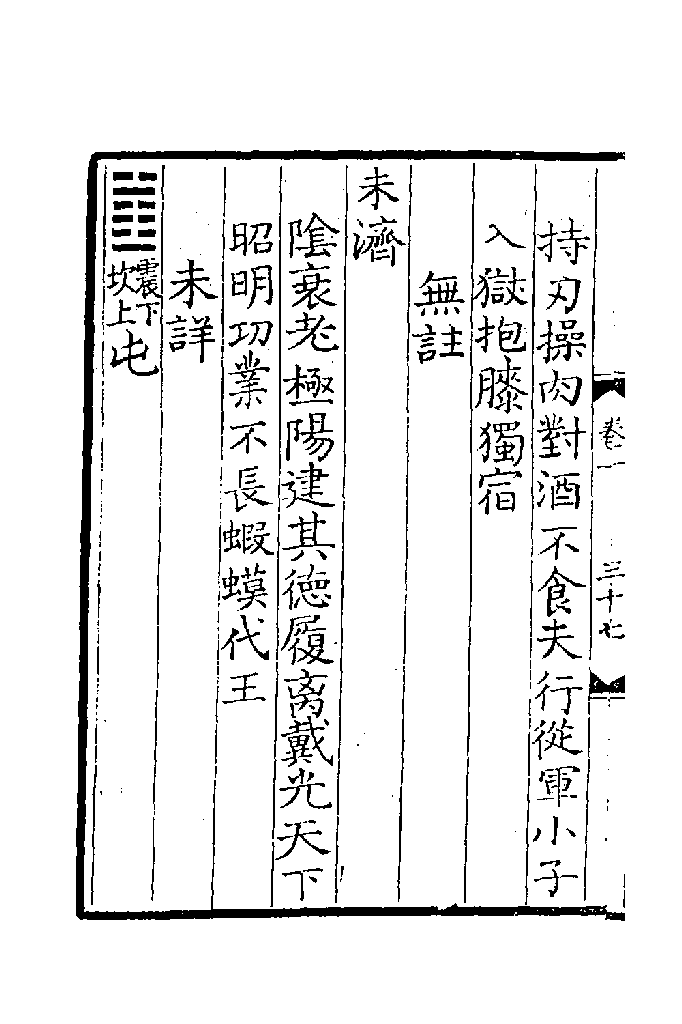 卷一 三十七
持刃操肉對酒不食夫行從軍小子
入獄抱膝獨宿
無註
未濟
陰衰老極陽建其德履离戴光天下
昭明功業不長蝦蟆代王
未詳
震下坎上屯